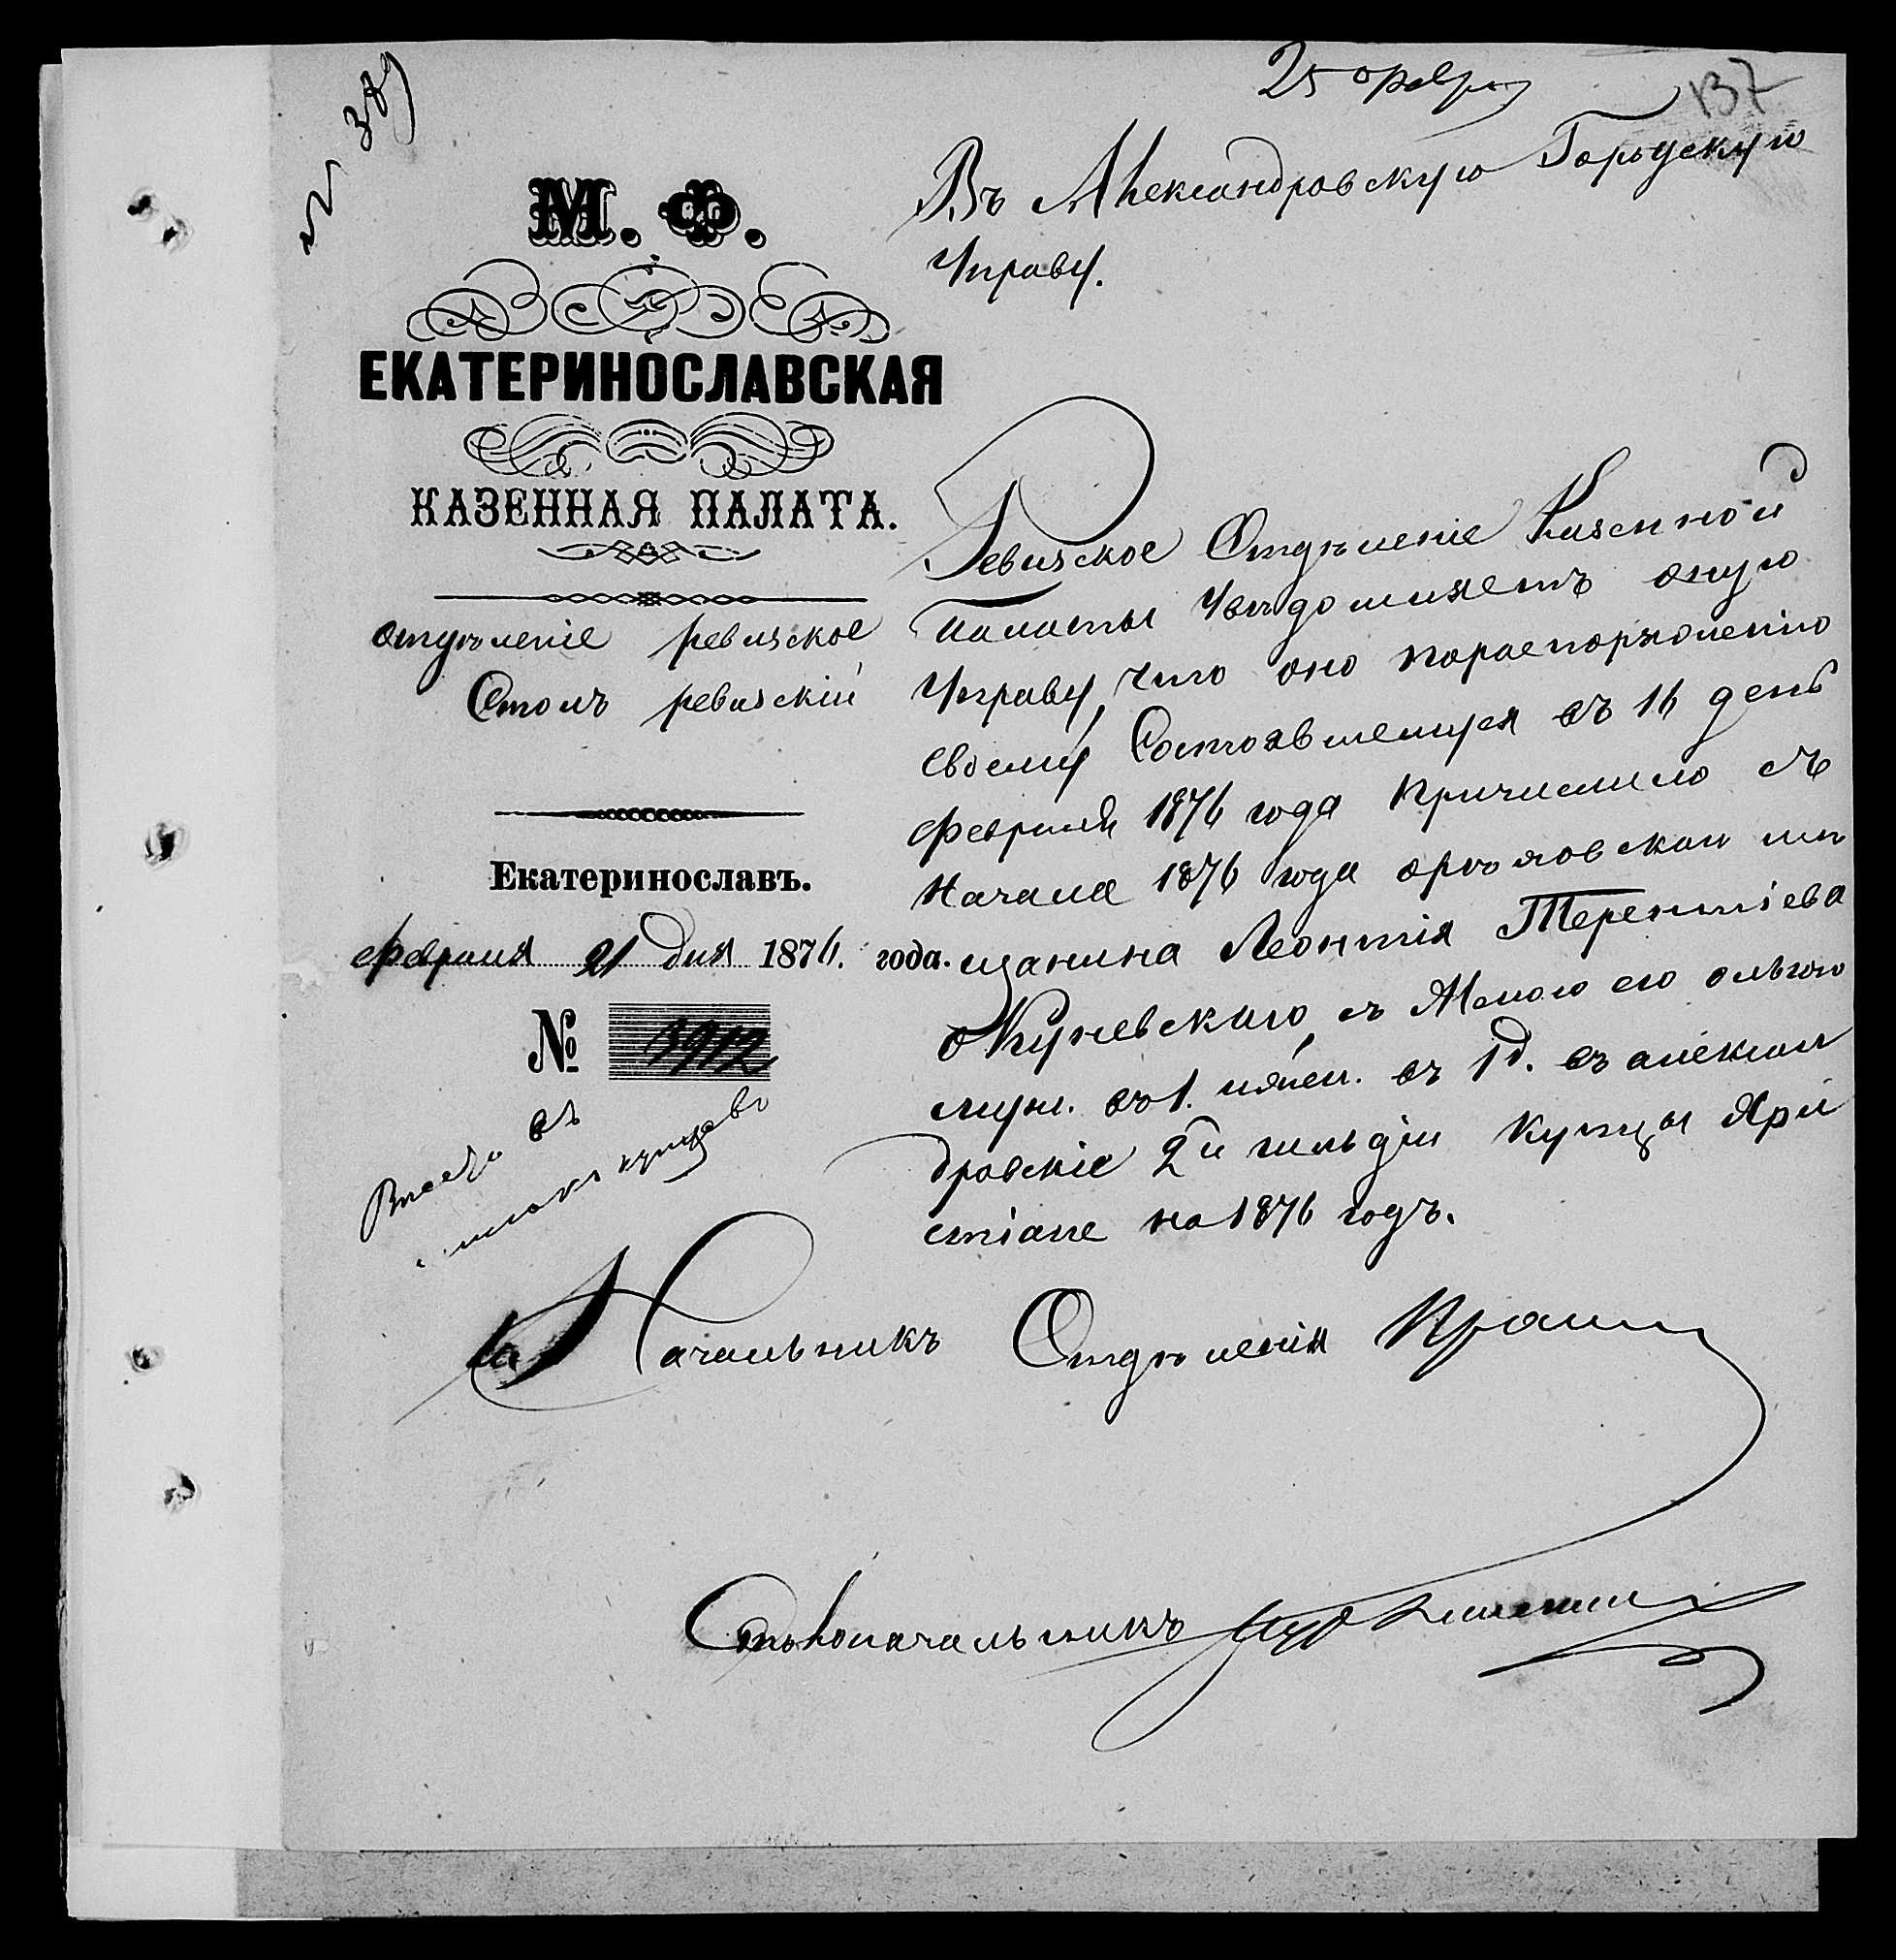 25 февр
137
№ 389
М. Ф.
ЕКАТЕРИНОСЛАВСКАЯ
КАЗЕННАЯ ПАЛАТА.
отдѣленіе ревизское
Столъ ревизскій
Екатеринославъ.
февраля 21 дня 1876. года.
№ 3912
Внесть въ
списокъ купцовъ
Въ Александровскую Городскую
Управу.
Ревизское Отдѣленіе Казенной
Палаты увѣдомляетъ оную
Управу, что оно пораспоряженію
своему Состоявшемуся въ 16 день
февраля 1876 года причислило съ
Начала 1876 года орѣховскаго мѣ
щанина Леонтія Терентіева
Окуневскаго, съ женою его ольгою
муж. въ 1. жен. въ 1 д. въ алексан
дровскіе 2й гильдіи купцы Хри
стіане на 1876 годъ.
За Начальникъ Отдѣленія
Столоначальникъ